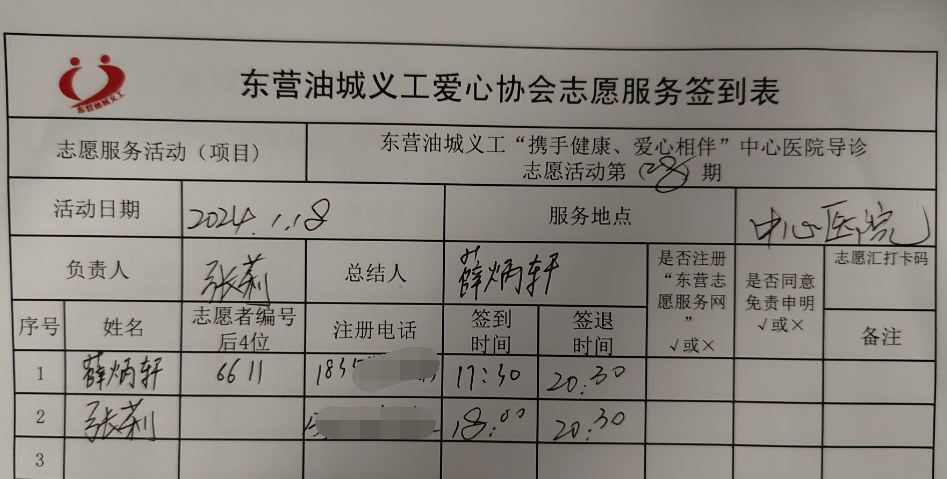 东营油城义工
东营油城义工爱心协会志愿服务签到表
志愿服务活动（项目）
东营油城义工“携手健康、爱心相伴”中心医院导诊
志愿活动第（28）期
活动日期 2024.1.18 服务地点 中心医院
负责人 张莉 总结人 薛炳轩
是否注册
“东营志
愿服务网
”
√或×
是否同意
免责申明
√或×
志愿汇打卡码
备注
序号 姓名
志愿者编号
后4位
注册电话
签到
时间
签退
时间
1 薛炳轩 6611 183 17:30 20:30
2 张莉 18:00 20:30
3